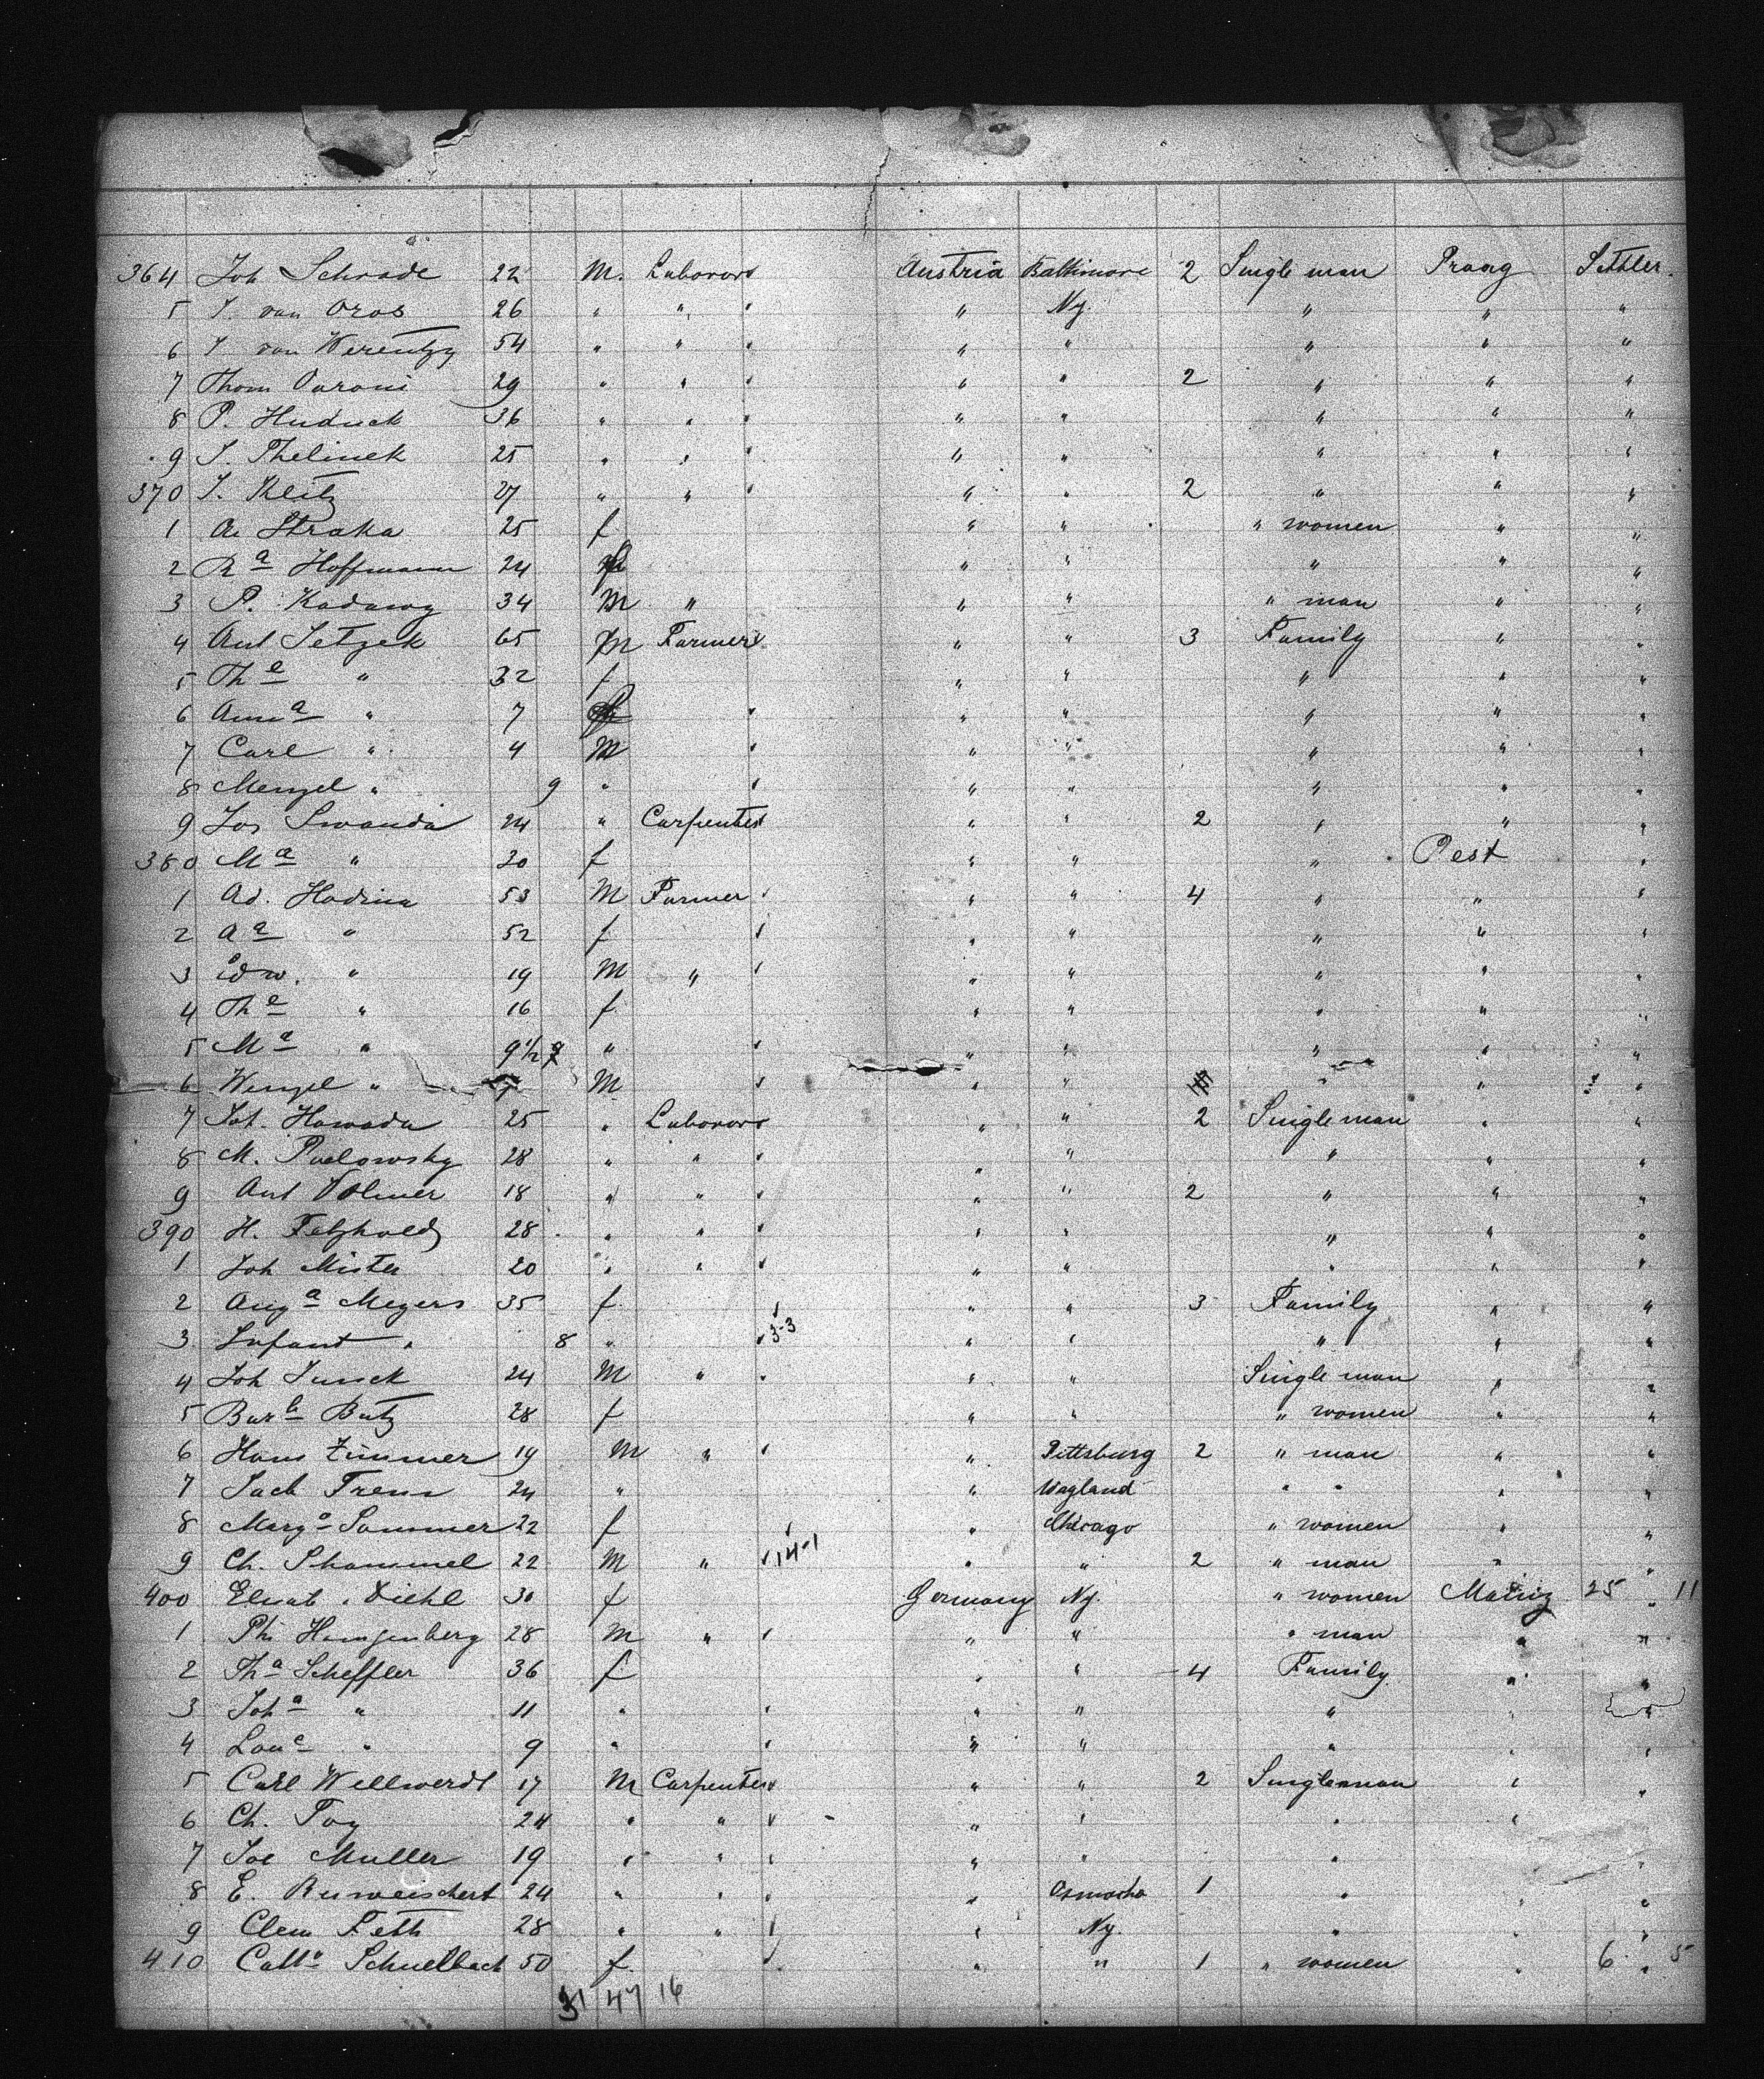 364 Joh Schrade 22 M. Laborors Austria Baltimore 2 Single man Praag Settler.
5 J. van Oros 26 " " " Ny. " " "
6 J van Werentzy 54 " " " " " " "
7 Thom Oaroni 29 " " " " 2 " " "
8 P. Huduck 36 " " " " " " "
9 J. Thelinek 25 " " " " " " "
370 J. Kleitz 27 " " " " 2 " " "
1 A. Straka 25 f " " " women " "
2 Rª Hoffmann 24 f " " " " "
3 P. Kadawy 34 M " " " " man " "
4 Ant Setzek 65 M Farmers " " 3 Family " "
5 Thе " 32 f " " " " "
6 Annª " 7 f " " " " "
7 Carl " 4 M " " " " "
8 Menzel " 9 " " " " " "
9 Jos Swanda 24 " Carpenter " " 2 " " "
380 Mª " 20 f " " " Pest "
1 Ad. Hadina 53 M Farmer " " 4 " " "
2 Aª " 52 f " " " " "
3 Edw. " 19 M " " " " " "
4 Thе " 16 f " " " " "
5 Mª " 9 1/2 " " " " " "
6 Wenzel " M " " " " "
7 Joh. Hawada 25 " Laborors " " 2 Single man " "
8 M. Padowsky 28 " " " " " " "
9 Ant Volmer 18 " " " " 2 " " "
390 H. Fetzhold 28 " " " " " " "
1 Joh Mista 20 " " " " " " "
2 Augª Meyers 35 f " " 3 Family " "
3 Infant " 8 " 3-3 " " " " "
4 Joh Junck 24 M " " " Single man " "
5 Barb Butz 28 f " " " women " "
6 Hans Zimmer 19 M " " Pittsburg 2 " man " "
7 Jack Frem 24 " " Wayland " " " "
8 Margª Sammer 22 f " Chicago " women " "
9 Ch. Schammel 22 M " 14-1 " " 2 " man " "
400 Elisab. Diehl 30 f Germany Ny. " women Mainz 25 " 11
1 Ph Hungenberg 28 M " " " " man " "
2 Thª Scheffler 36 f " " 4 Family " "
3 Johª " 11 " " " " " "
4 Loue " 9 " " " " " "
5 Carl Wellwerdt 17 M Carpenters " " 2 Single man " "
6 Ch. Foy 24 " " " " " "
7 Joe Muller 19 " " " " " "
8 E. Ruweischert 24 " " " Osmocha 1 " " "
9 Clem Feth 28 " " " Ny. " " "
410 Cathª Schnellbach 50 f. " " 1 " women " 6 " 5
31 47 16